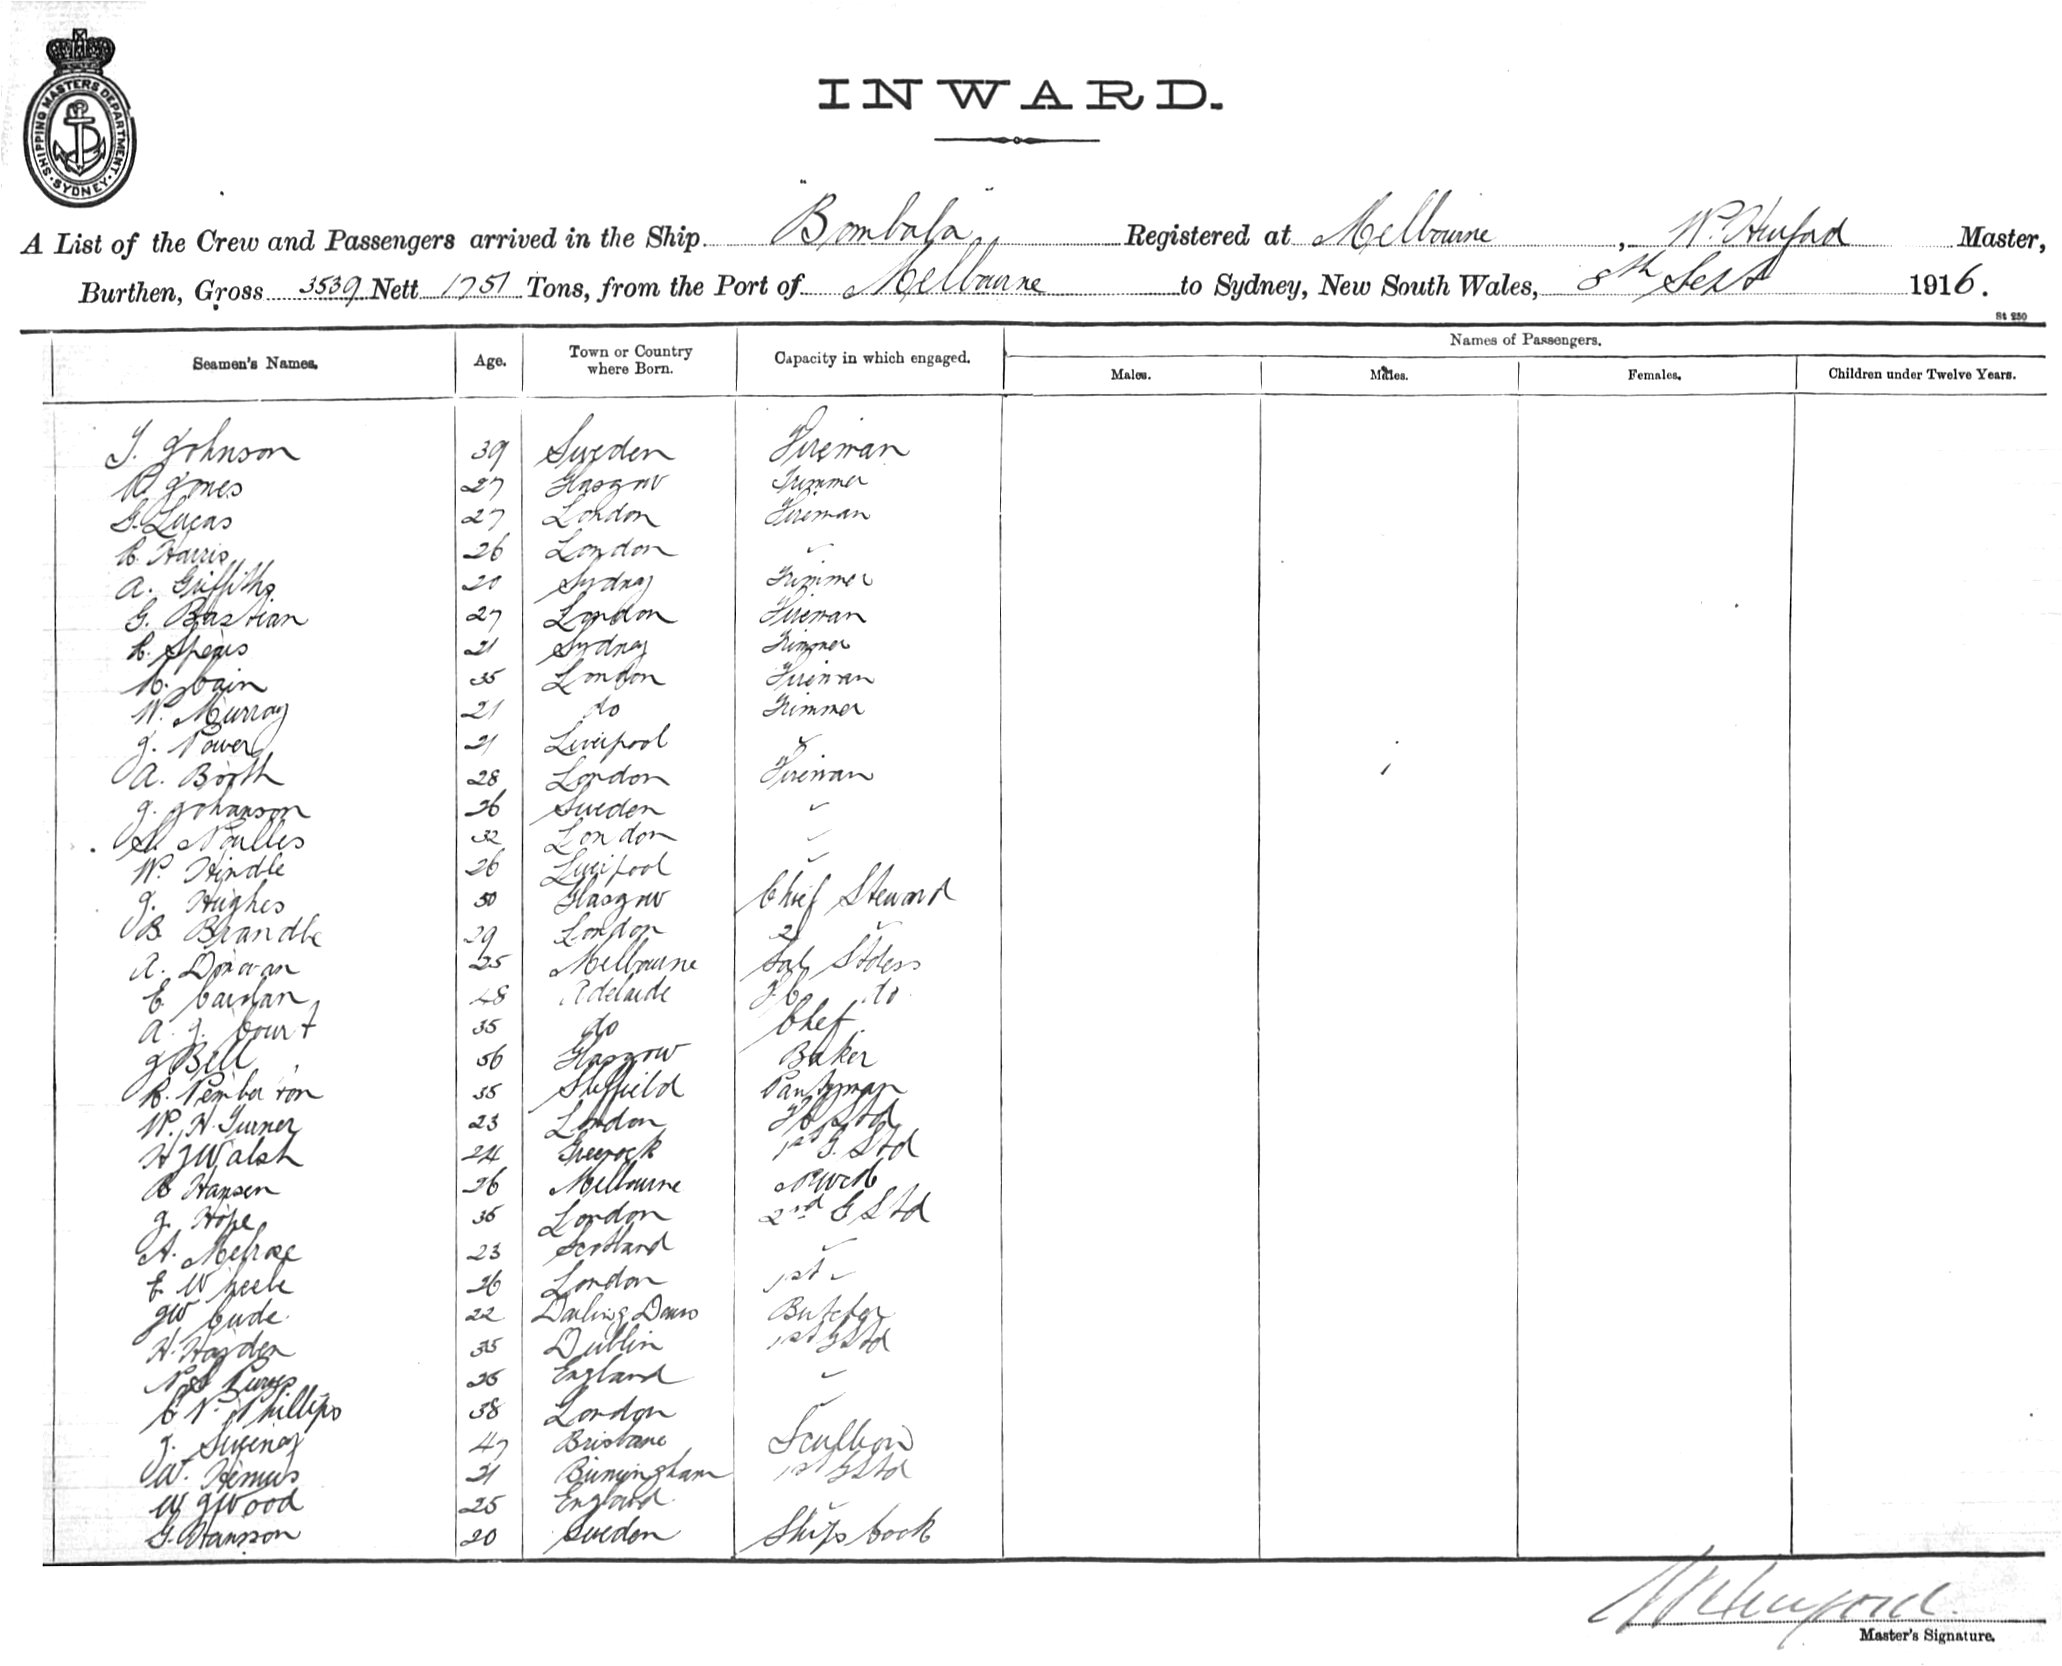 SHIPPING MASTERS DEPARTMENT. SYDNEY.
INWARD.
A List of the Crew and Passengers arrived in the Ship "Bombala" Registered at Melbourne, W. Hurford Master,
Burthen, Gross 3539 Nett 1751 Tons, from the Port of Melbourne to Sydney, New South Wales, 8th Sept 1916.
St 250
Seamen's Names. Age. Town or Country where Born. Capacity in which engaged. Names of Passengers.
Males. Males. Females. Children under Twelve Years.
Johnson 39 Sweden Fireman
Jones 27 Glasgow Trimmer
G. Lucas 27 London Fireman
Harris 26 London "
A. Griffiths 20 Sydney Trimmer
G. Bastian 27 London Fireman
Spears 21 Sydney Trimmer
Cain 35 London Fireman
W. Murray 21 do Trimmer
J. Power 21 Liverpool "
A. Booth 28 London Fireman
J. Johanson 26 Sweden "
32 London "
W. Hindle 26 Liverpool "
J. Hughes 50 Glasgow Chief Steward
B. Brandle 29 London 2 "
A. Donovan 25 Melbourne Sal Stdess
E. 48 Adelaide do
A. J. Court 35 do Chef
J Bell 56 Glasgow Baker
R. Pemberton 35 Sheffield Pantryman
W. H. Turner 23 London Std
H J Walsh 24 Greenock 1st G. Std
Hansen 26 Melbourne
J. Hope 35 London 2nd G Std
A. Melrose 23 Scotland "
E Wheele 26 London 1st "
JW Cude 22 Darling Downs Butcher
H. Hayden 35 Dublin 1st G Std
Purves 25 England "
C P. Phillips 38 London "
J. Sweeney 47 Brisbane Scullion
W. Hemus 21 Birmingham 1st G Std
W J Wood 25 England "
G. Hansson 20 Sweden Ships Cook
W Hurford
Master's Signature.